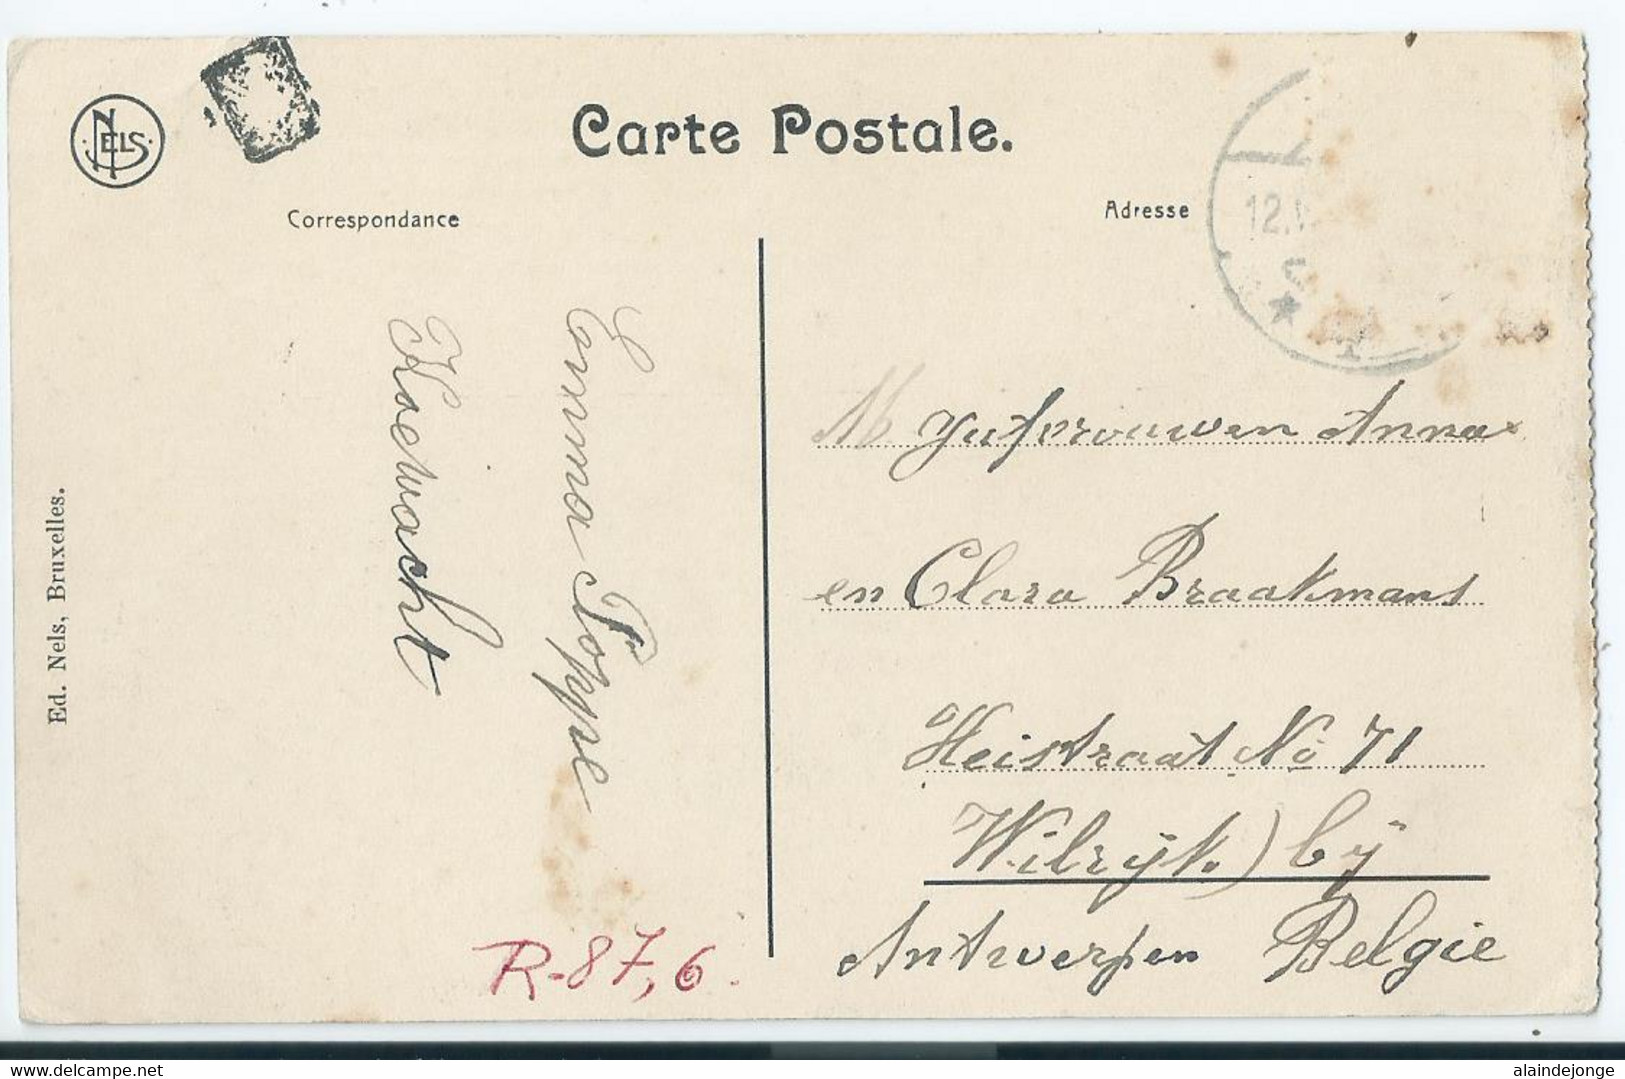 NELS
Carte Postale.
Correspondance
Adresse
12.V
Emma Poppe
Koewacht
M Juferouwen Anna
en Clara Braakmans
Heistraat No 71
Wilrijk) bij
Antwerpen Belgie
R-87,6.
Ed. Nels, Bruxelles.
alaindejonge
delcampe.net